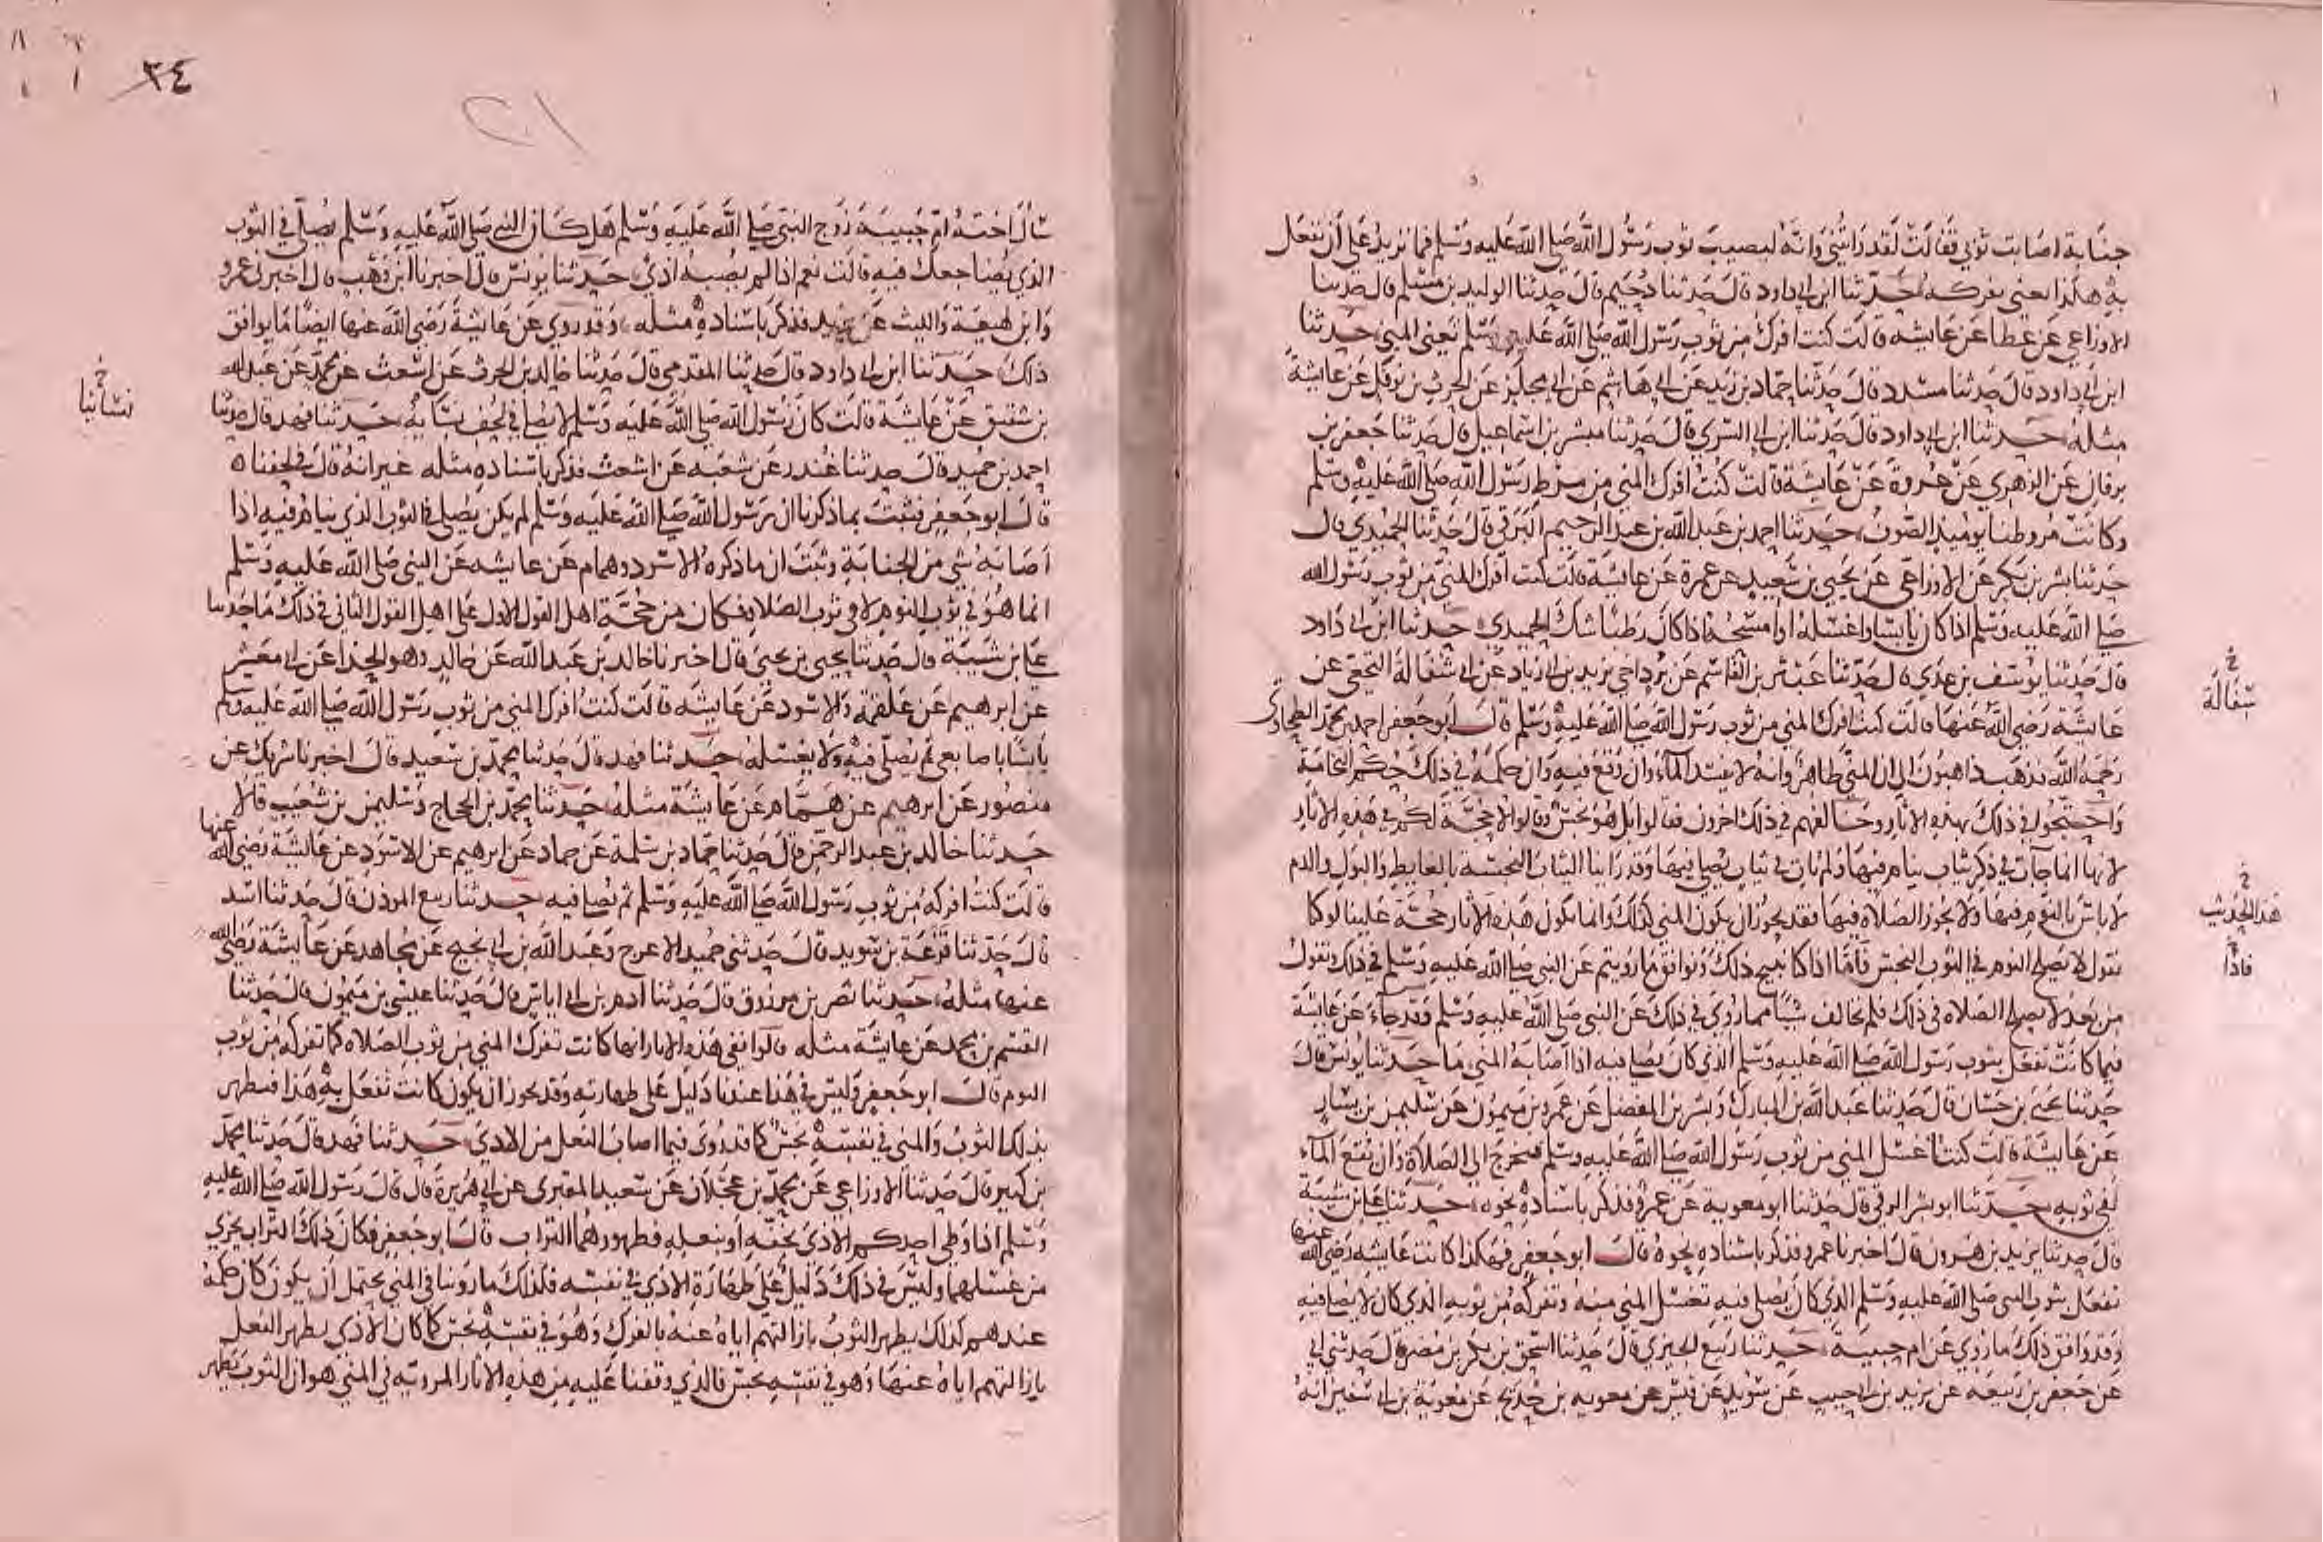 جنابة اصابت ثوبي فقالت لقد رأيتني وانه ليصيب ثوب رسول الله صلى الله عليه وسلم فما نزيد على أن نفعل
به هكذا يعني نفركه حدثنا ابن ابي داود قال حدثنا دحيم قال حدثنا الوليد بن مسلم قال حدثنا
الاوزاعي عن عطا عن عايشه قالت كنت افرك من ثوب رسول الله صلى الله عليه وسلم تعني المني حدثنا
ابن ابي داود قال حدثنا مسدد قال حدثنا حماد بن زيد عن ابي هاشم عن ابي مجلز عن الحرث بن نوفل عن عايشة
مثله حدثنا ابن ابي داود قال حدثنا ابن ابي السري قال حدثنا مبشر بن اسماعيل قال حدثنا جعفر بن
برقان عن الزهري عن عروة عن عايشة قالت كنت افرك المني من مرط رسول الله صلى الله عليه وسلم
وكانت مروطنا يوميذ الصوف حدثنا احمد بن عبد الله بن عبد الرحيم البرقي قال حدثنا الحميدي قال
حدثنا بشر بن بكر عن الاوزاعي عن يحيى بن سعيد عن عمرة عن عايشة قالت كنت افرك المني من ثوب رسول الله
صلى الله عليه وسلم اذا كان يابسا واغسله او امسحه اذا كان رطبا شك الحميدي حدثنا ابن ابي داود
قال حدثنا يوسف بن عدي قال حدثنا عبثر بن القاسم عن برد اخي يزيد بن ابي زياد عن ابي سفالة النخعي عن
عايشة رضي الله عنها قالت كنت افرك المني من ثوب رسول الله صلى الله عليه وسلم قال ابو جعفر احمد بن محمد الطحاوي
رحمه الله فذهب ذاهبون الى ان المني طاهر وانه لا يفسد الماء وان وقع فيه وان حكمه في ذلك حكم النخامة
واحتجوا في ذلك بهذه الاثار وخالفهم في ذلك اخرون فقالوا بل هو نجس وقالوا لا حجة لكم في هذه الاثار
لانها انما جات في ذكر ثياب ينام فيها ولم تات في ثياب يصلي فيها وقد راينا الثياب النجسة بالغايط والبول والدم
لا باس بالنوم فيها ولا يجوز الصلاة فيها فقد يجوز ان يكون المني كذلك وانما يكون هذه الاثار حجة علينا لو كنا
نقول لا يصلح النوم في الثوب النجس فاما اذا كنا نبيح ذلك ونوافق ما رويتم عن النبي صلى الله عليه وسلم في ذلك ونقول
من بعد لا يصلح الصلاه في ذلك فلم نخالف شيا مما روي في ذلك عن النبي صلى الله عليه وسلم وقد جاء عن عايشة
فيما كانت تفعل بثوب رسول الله صلى الله عليه وسلم الذي كان يصلي فيه اذا اصابه المني ما حدثنا يونس قال
حدثنا يحيى بن حسان قال حدثنا عبد الله بن المبارك وبشر بن المفضل عن عمرو بن ميمون عن سليمن بن يسار
عن عايشة قالت كنت اغسل المني من ثوب رسول الله صلى الله عليه وسلم فيخرج الى الصلاة وان بقع الماء
لفي ثوبه حدثنا ابو بشر الرقي قال حدثنا ابو معوية عن عمرو فذكر باسناده نحوه حدثنا علي بن شيبة
قال حدثنا يزيد بن هرون قال اخبرنا عمرو فذكر باسناده نحوه قال ابو جعفر فهكذا كانت عايشه رضي الله عنها
تفعل بثوب النبي صلى الله عليه وسلم الذي كان يصلي فيه تغسل المني منه وتفركه من ثوبه الذي كان لا يصلي فيه
وقد وافق ذلك ما روي عن ام حبيبة حدثنا ربيع الجيزي قال حدثنا اسحق بن بكر بن مضر قال حدثني ابي
عن جعفر بن ربيعه عن يزيد بن ابي حبيب عن سويد بن قيس عن معويه بن حديج عن معوية بن ابي سفين انه
خ
سفالة
خ
هذا الحديث
خ
فاذا
٣٤
سأل اخته ام حبيبة زوج النبي صلى الله عليه وسلم هل كان النبي صلى الله عليه وسلم يصلي في الثوب
الذي يضاجعك فيه قالت نعم اذا لم يصبه اذي حدثنا يونس قال اخبرنا ابن وهب قال اخبرني عمرو
وابن لهيعة والليث عن يزيد فذكر باسناده مثله وقد روي عن عايشة رضي الله عنها ايضا ما يوافق
ذلك حدثنا ابن ابي داود قال حدثنا المقدمي قال حدثنا خالد بن الحرث عن اشعث عن محمد عن عبد الله
بن شقيق عن عايشة قالت كان رسول الله صلى الله عليه وسلم لا يصلي في لحف نسايه حدثنا فهد قال حدثنا
احمد بن حميد قال حدثنا غندر عن شعبه عن اشعث فذكر باسناده مثله غير انه قال في لحفنا
قال ابو جعفر فثبت بما ذكرنا ان رسول الله صلى الله عليه وسلم لم يكن يصلي في الثوب الذي ينام فيه اذا
اصابه شي من الجنابة وثبت ان ما ذكره الاسود وهمام عن عايشه عن النبي صلى الله عليه وسلم
انما هو في ثوب النوم لا في ثوب الصلاه فكان من حجة اهل القول الاول على اهل القول الثاني في ذلك ما حدثنا
علي بن شيبة قال حدثنا يحيى بن يحيى قال اخبرنا خالد بن عبد الله عن خالد وهو الحذا عن ابي معشر
عن ابرهيم عن علقمة والاسود عن عايشه قالت كنت افرك المني من ثوب رسول الله صلى الله عليه وسلم
يابسا باصابعي ثم يصلي فيه ولا يغسله حدثنا فهد قال حدثنا محمد بن سعيد قال اخبرنا شريك عن
منصور عن ابرهيم عن همام عن عايشة مثله حدثنا محمد بن الحجاج وسليمن بن شعيب قالا
حدثنا خالد بن عبد الرحمن قال حدثنا حماد بن سلمة عن حماد عن ابرهيم عن الاسود عن عايشة رضي الله عنها
قالت كنت افركه من ثوب رسول الله صلى الله عليه وسلم ثم يصلي فيه حدثنا ربيع الموذن قال حدثنا اسد
قال حدثنا قزعة بن سويد قال حدثني حميد الاعرج وعبد الله بن ابي نجيح عن مجاهد عن عايشة رضي الله
عنها مثله حدثنا نصر بن مرزوق قال حدثنا ادم بن ابي اياس قال حدثنا عيسى بن ميمون قال حدثنا
القسم بن محمد عن عايشة مثله قالوا ففي هذه الاثار انها كانت تفرك المني من ثوب الصلاه كما تفركه من ثوب
النوم قال ابو جعفر وليس في هذا عندنا دليل على طهارته وقد يجوز ان يكون كانت تفعل به هذا فيطهر
بذلك الثوب والمني في نفسه نجس كما قد روي فيما اصاب النعل من الاذي حدثنا فهد قال حدثنا محمد
بن كثير قال حدثنا الاوزاعي عن محمد بن عجلان عن سعيد المقبري عن ابي هريرة قال قال رسول الله صلى الله عليه
وسلم اذا وطي احدكم الاذي بخفه او بنعله فطهورهما التراب قال ابو جعفر فكان ذلك التراب يجزي
من غسلهما وليس في ذلك دليل على طهارة الاذي في نفسه فكذلك ما روينا في المني يحتمل ان يكون كان حكمه
عندهم كذلك يطهر الثوب بازالتهم اياه عنه بالفرك وهو في نفسه نجس كما كان الاذي يطهر النعل
بازالتهم اياه عنها وهو في نفسه نجس فالذي وقفنا عليه من هذه الاثار المروية في المني هو ان الثوب يطهر
خ